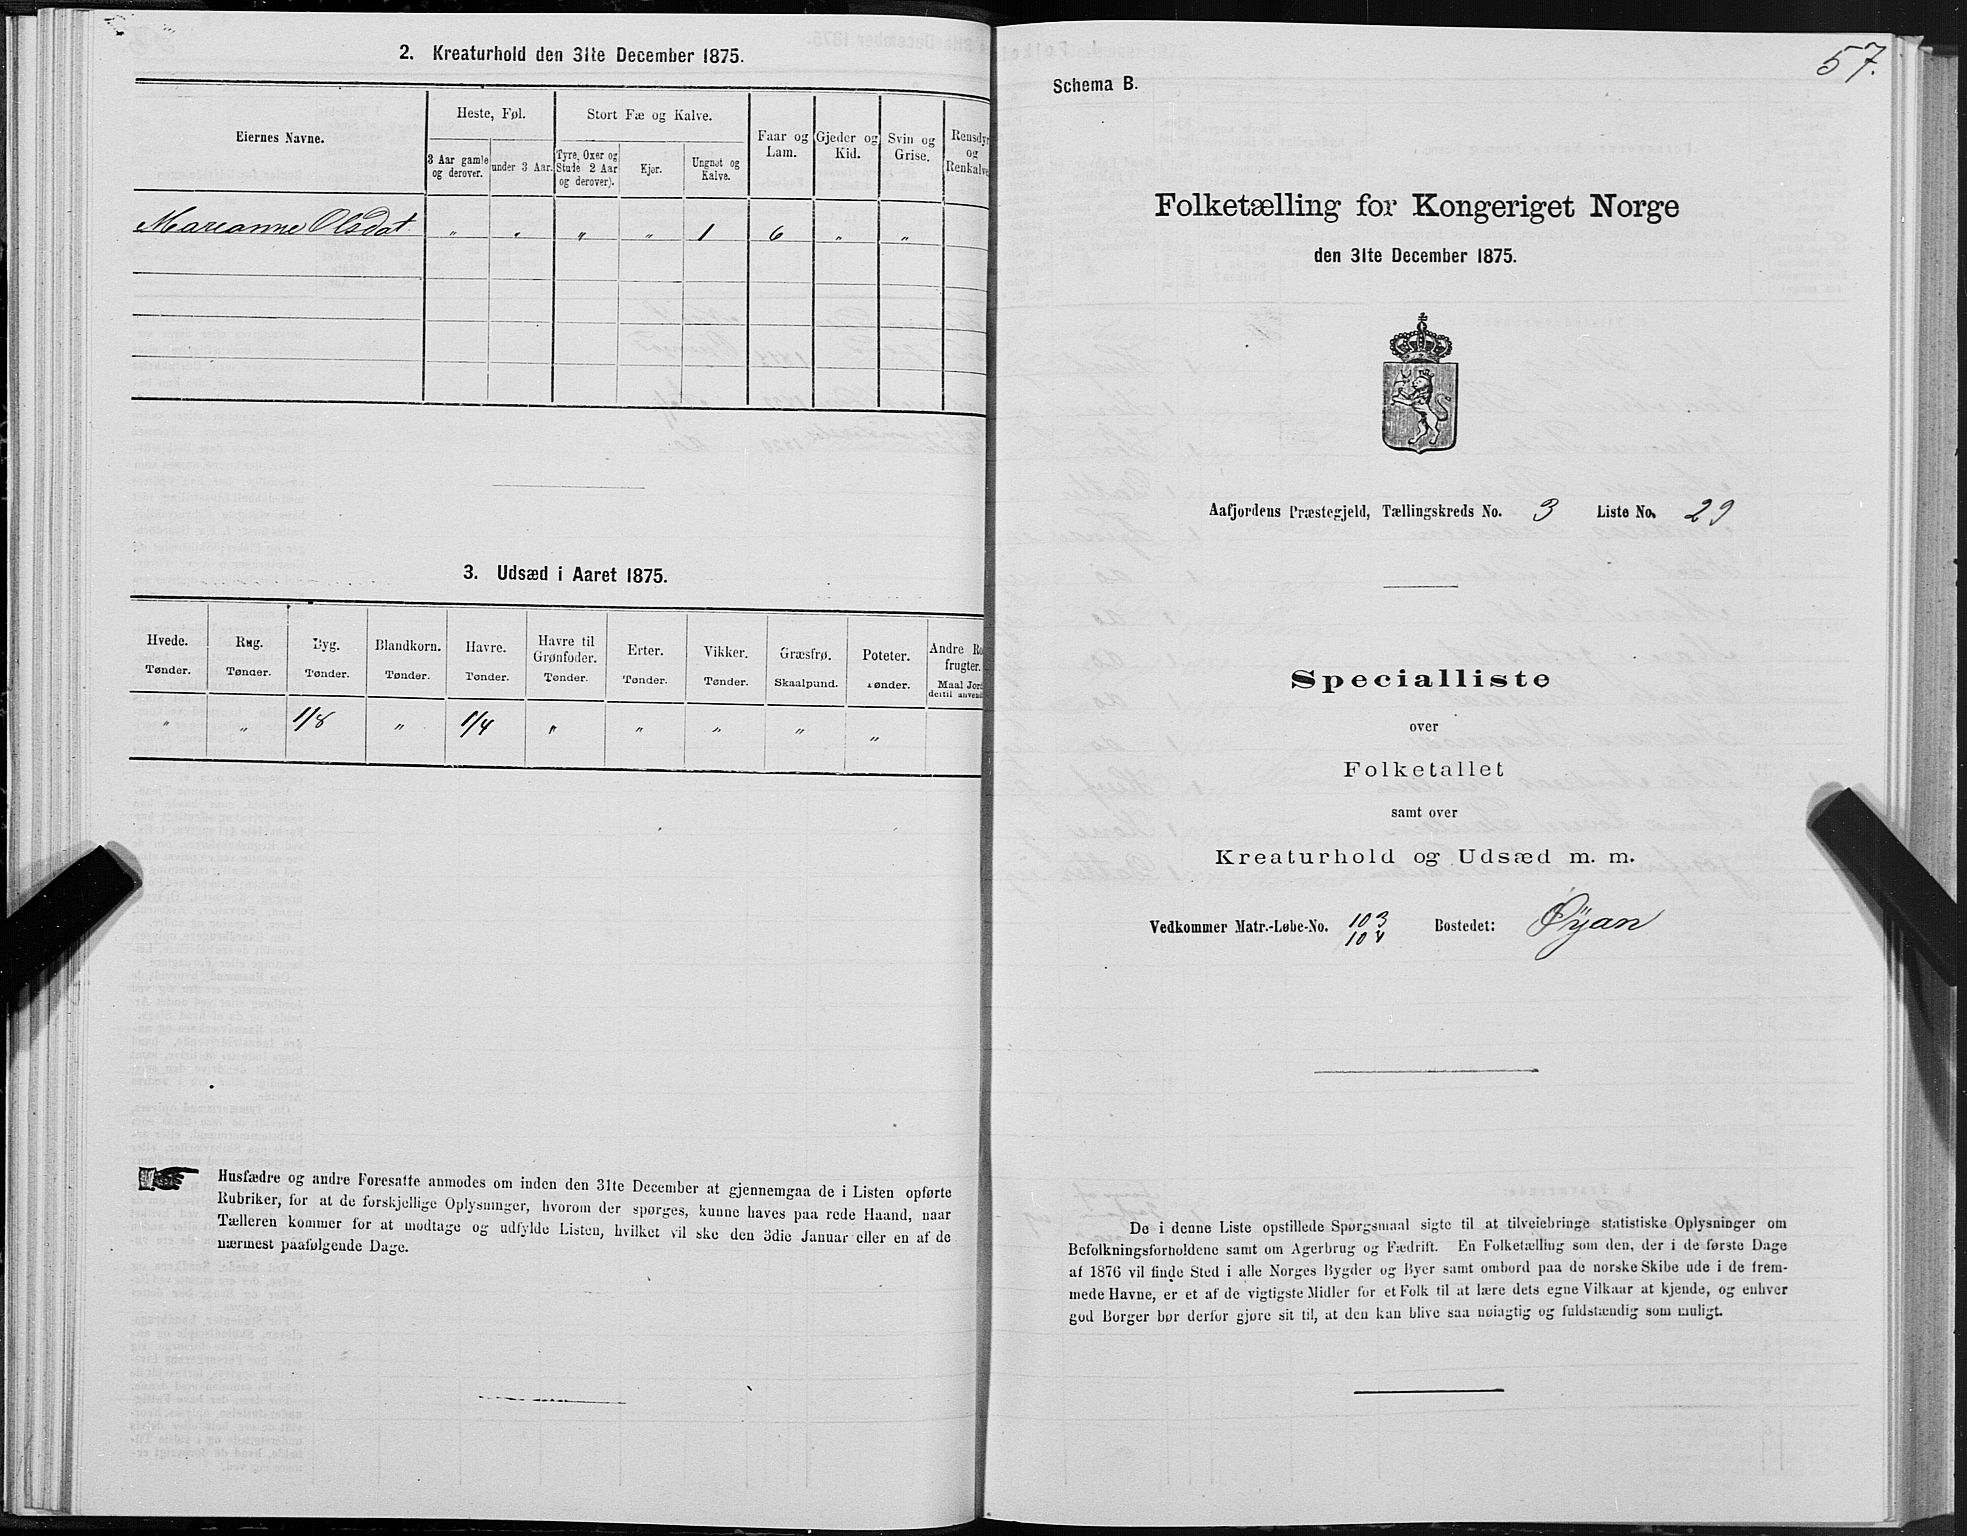 2. Kreaturhold den 31te December 1875.
Eiernes Navne.
Heste, Føl.
Stort Fæ og Kalve.
Faar og
Lam.
Gjeder og
Kid.
Svin og
Grise.
Rensdyr
og
Renkalve
3 Aar gamle
og derover.
under 3 Aar.
Tyre, Oxer og
Stude 2 Aar
og derover).
Kjør.
Ungnøt og
Kalve.
Marianne Olsdat " " " " 1 6 " "
3. Udsæd i Aaret 1875.
Hvede. Rug. Byg. Blandkorn. Havre. Havre til Grønfoder. Erter. Vikker. Græsfrø. Poteter. Andre Ro
frugter.
Tønder. Tønder. Tønder. Tønder. Tønder. Tønder. Tønder. Tønder. Skaalpund. Tønder. Maal Jord
dertil anvend
" " 1/8 " 1/4 " " " " "
Husfædre og andre Foresatte anmodes om inden den 31te December at gjennemgaa de i Listen opførte
Rubriker, for at de forskjellige Oplysninger, hvorom der spørges, kunne haves paa rede Haand, naar
Tælleren kommer for at modtage og udfylde Listen, hvilket vil ske den 3die Januar eller en af de
nærmest paafølgende Dage.
57.
Schema B.
Folketælling for Kongeriget Norge
den 31te December 1875.
Aafjordens Præstegjeld, Tællingskreds No. 3 Liste No. 29
Specialliste
over
Folketallet
samt over
Kreaturhold og Udsæd m. m.
Vedkommer Matr.-Løbe-No. 103 Bostedet: Øÿan
104
De i denne Liste opstillede Spørgsmaal sigte til at tilveiebringe statistiske Oplysninger om
Befolkningsforholdene samt om Agerbrug og Fædrift. En Folketælling som den, der i de første Dage
af 1876 vil finde Sted i alle Norges Bygder og Byer samt ombord paa de norske Skibe ude i de frem-
mede Havne, er et af de vigtigste Midler for et Folk til at lære dets egne Vilkaar at kjende, og enhver
god Borger bør derfor gjøre sit til, at den kan blive saa nøiagtig og fuldstændig som muligt.